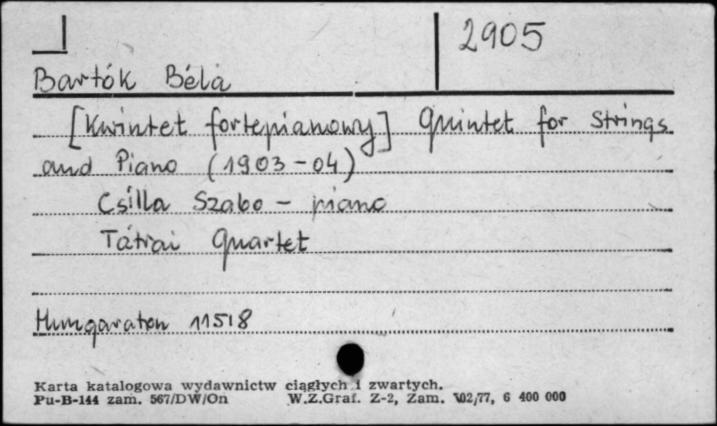 2905
Bartók Béla
[Kwintet fortepianowy] Quintet for Strings
and Piano (1903-04)
Csilla Szabo - piano
Tátrai Quartet
Hungaraton 11518
Karta katalogowa wydawnictw ciągłych i zwartych.
Pu-B-144 zam. 567/DW/On W.Z.Graf. Z-2, Zam. 102/77, 6 400 000